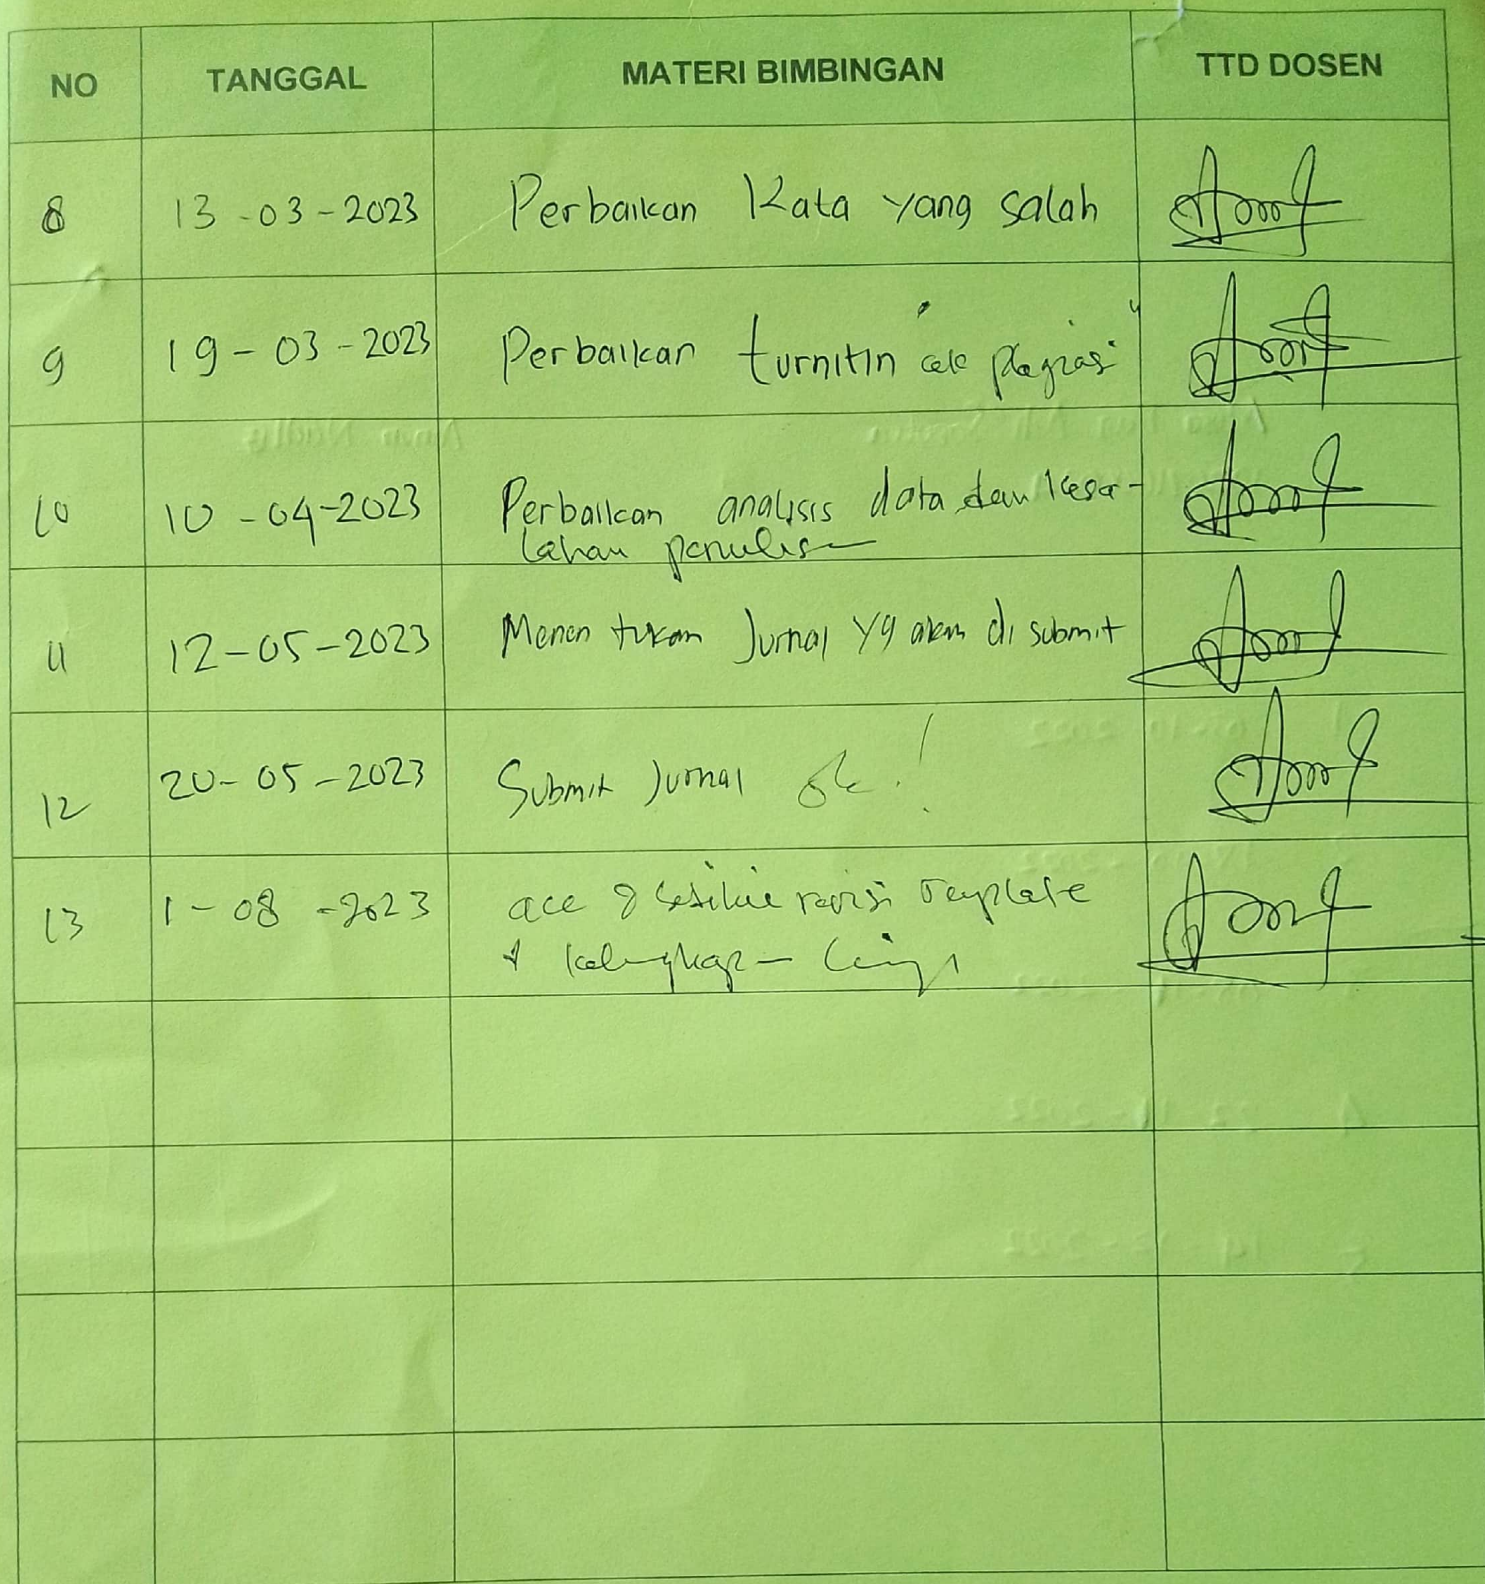 NO TANGGAL MATERI BIMBINGAN TTD DOSEN
8 13-03-2023 Perbaikan Kata yang salah
9 19-03-2023 Perbaikan turnitin "cek plagiasi"
10 10-04-2023 Perbaikan analisis data dan kesa-
lahan penulisan
11 12-05-2023 Menentukan Jurnal yg akan di submit
12 20-05-2023 Submit Jurnal ok!
13 1-08-2023 acc revisi Template